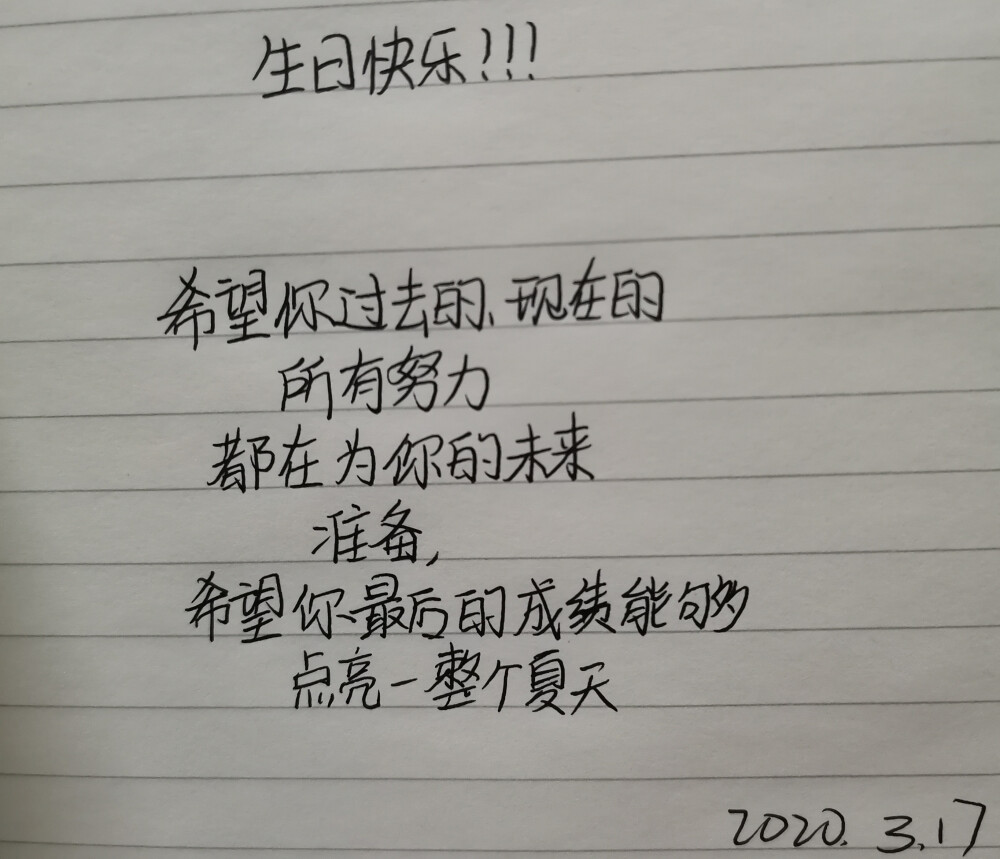 生日快乐!!!
希望你过去的、现在的
所有努力
都在为你的未来
准备,
希望你最后的成绩能够
点亮一整个夏天
2020.3.17